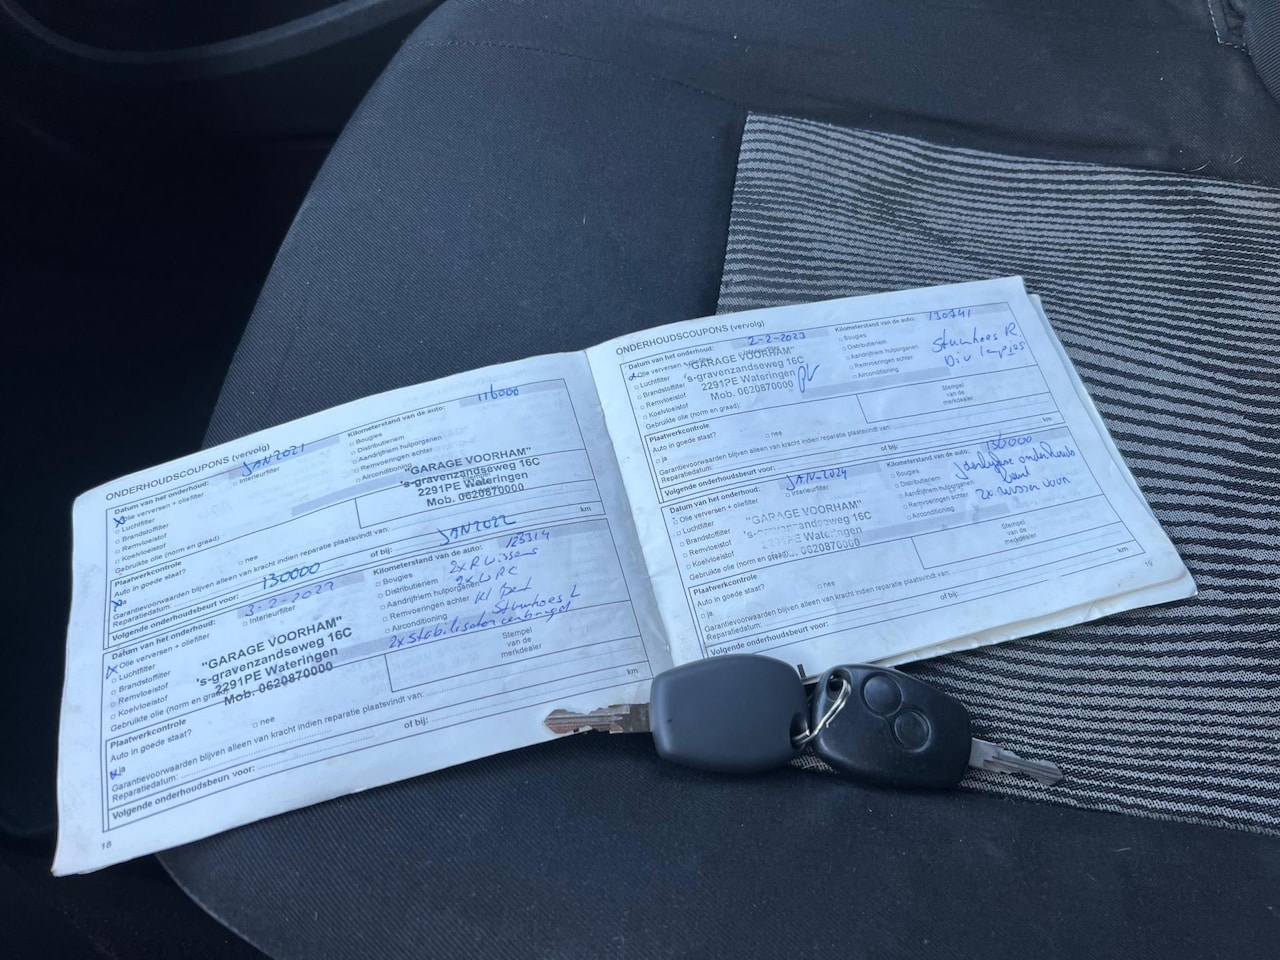 ONDERHOUDSCOUPONS (vervolg)
Datum van het onderhoud: JAN 2021
Kilometerstand van de auto: 116000
Olie verversen + oliefilter
Interieurfilter
Bougies
Luchtfilter
Distributieriem
Brandstoffilter
Aandrijfriem hulporganen
Remvloeistof
Remvoeringen achter
Koelvloeistof
Airconditioning
Gebruikte olie (norm en graad):
"GARAGE VOORHAM"
's-gravenzandseweg 16C
2291PE Wateringen
Mob. 0620870000
Plaatwerkcontrole
Auto in goede staat?
nee
Garantievoorwaarden blijven alleen van kracht indien reparatie plaatsvindt van:
Reparatiedatum:
Volgende onderhoudsbeurt voor: 130000
of bij: JAN 2022
km
Datum van het onderhoud:
Kilometerstand van de auto: 123314
Olie verversen + oliefilter
Interieurfilter
Bougies
Luchtfilter
Distributieriem
Brandstoffilter
Aandrijfriem hulporganen
Remvloeistof
Remvoeringen achter
Koelvloeistof
Airconditioning
Gebruikte olie (norm en graad):
Stuurhoes L
"GARAGE VOORHAM"
's-gravenzandseweg 16C
2291PE Wateringen
Mob. 0620870000
Stempel
van de
merkdealer
Plaatwerkcontrole
Auto in goede staat?
ja
nee
Garantievoorwaarden blijven alleen van kracht indien reparatie plaatsvindt van:
Reparatiedatum:
Volgende onderhoudsbeurt voor:
of bij:
km
18
ONDERHOUDSCOUPONS (vervolg)
Datum van het onderhoud: 2-2-2023
Kilometerstand van de auto: 130741
Olie verversen
Bougies
Luchtfilter
Distributieriem
Brandstoffilter
Aandrijfriem hulporganen
Remvloeistof
Remvoeringen achter
Koelvloeistof
Airconditioning
Stuurhoes R
Div lampjes
Gebruikte olie (norm en graad):
"GARAGE VOORHAM"
's-gravenzandseweg 16C
2291PE Wateringen
Mob. 0620870000
Stempel
van de
merkdealer
Plaatwerkcontrole
Auto in goede staat?
ja
nee
Garantievoorwaarden blijven alleen van kracht indien reparatie plaatsvindt van:
Reparatiedatum:
Volgende onderhoudsbeurt voor:
of bij:
km
Datum van het onderhoud: JAN-2024
Kilometerstand van de auto: 136000
Olie verversen + oliefilter
Interieurfilter
Bougies
Luchtfilter
Distributieriem
Brandstoffilter
Aandrijfriem hulporganen
Remvloeistof
Remvoeringen achter
Koelvloeistof
Airconditioning
Gebruikte olie (norm en graad):
"GARAGE VOORHAM"
's-gravenzandseweg 16C
2291PE Wateringen
Mob. 0620870000
Stempel
van de
merkdealer
Plaatwerkcontrole
Auto in goede staat?
ja
nee
Garantievoorwaarden blijven alleen van kracht indien reparatie plaatsvindt van:
Reparatiedatum:
Volgende onderhoudsbeurt voor:
of bij:
km
19